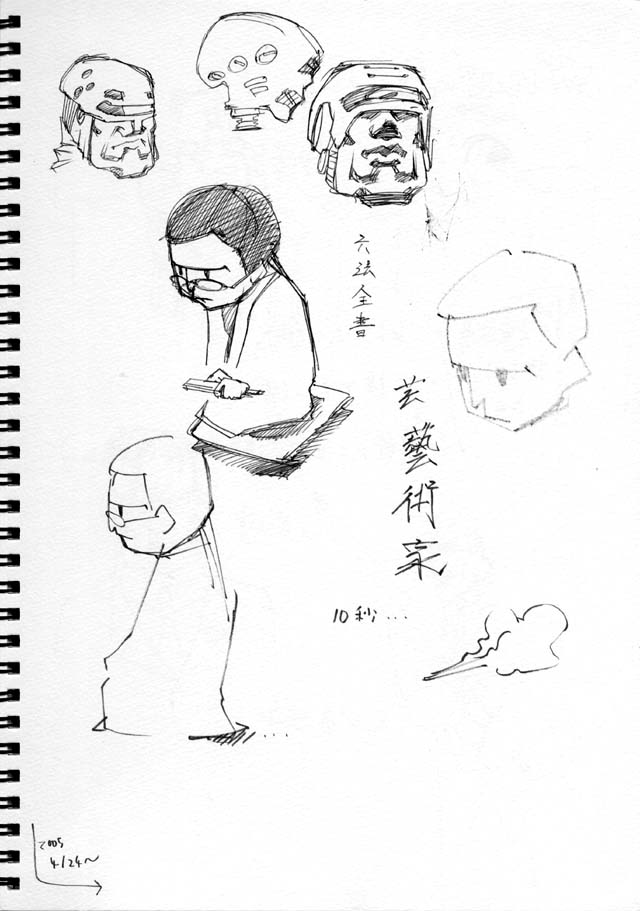 六法全書
芸藝術家
10秒...
2005
4/24~